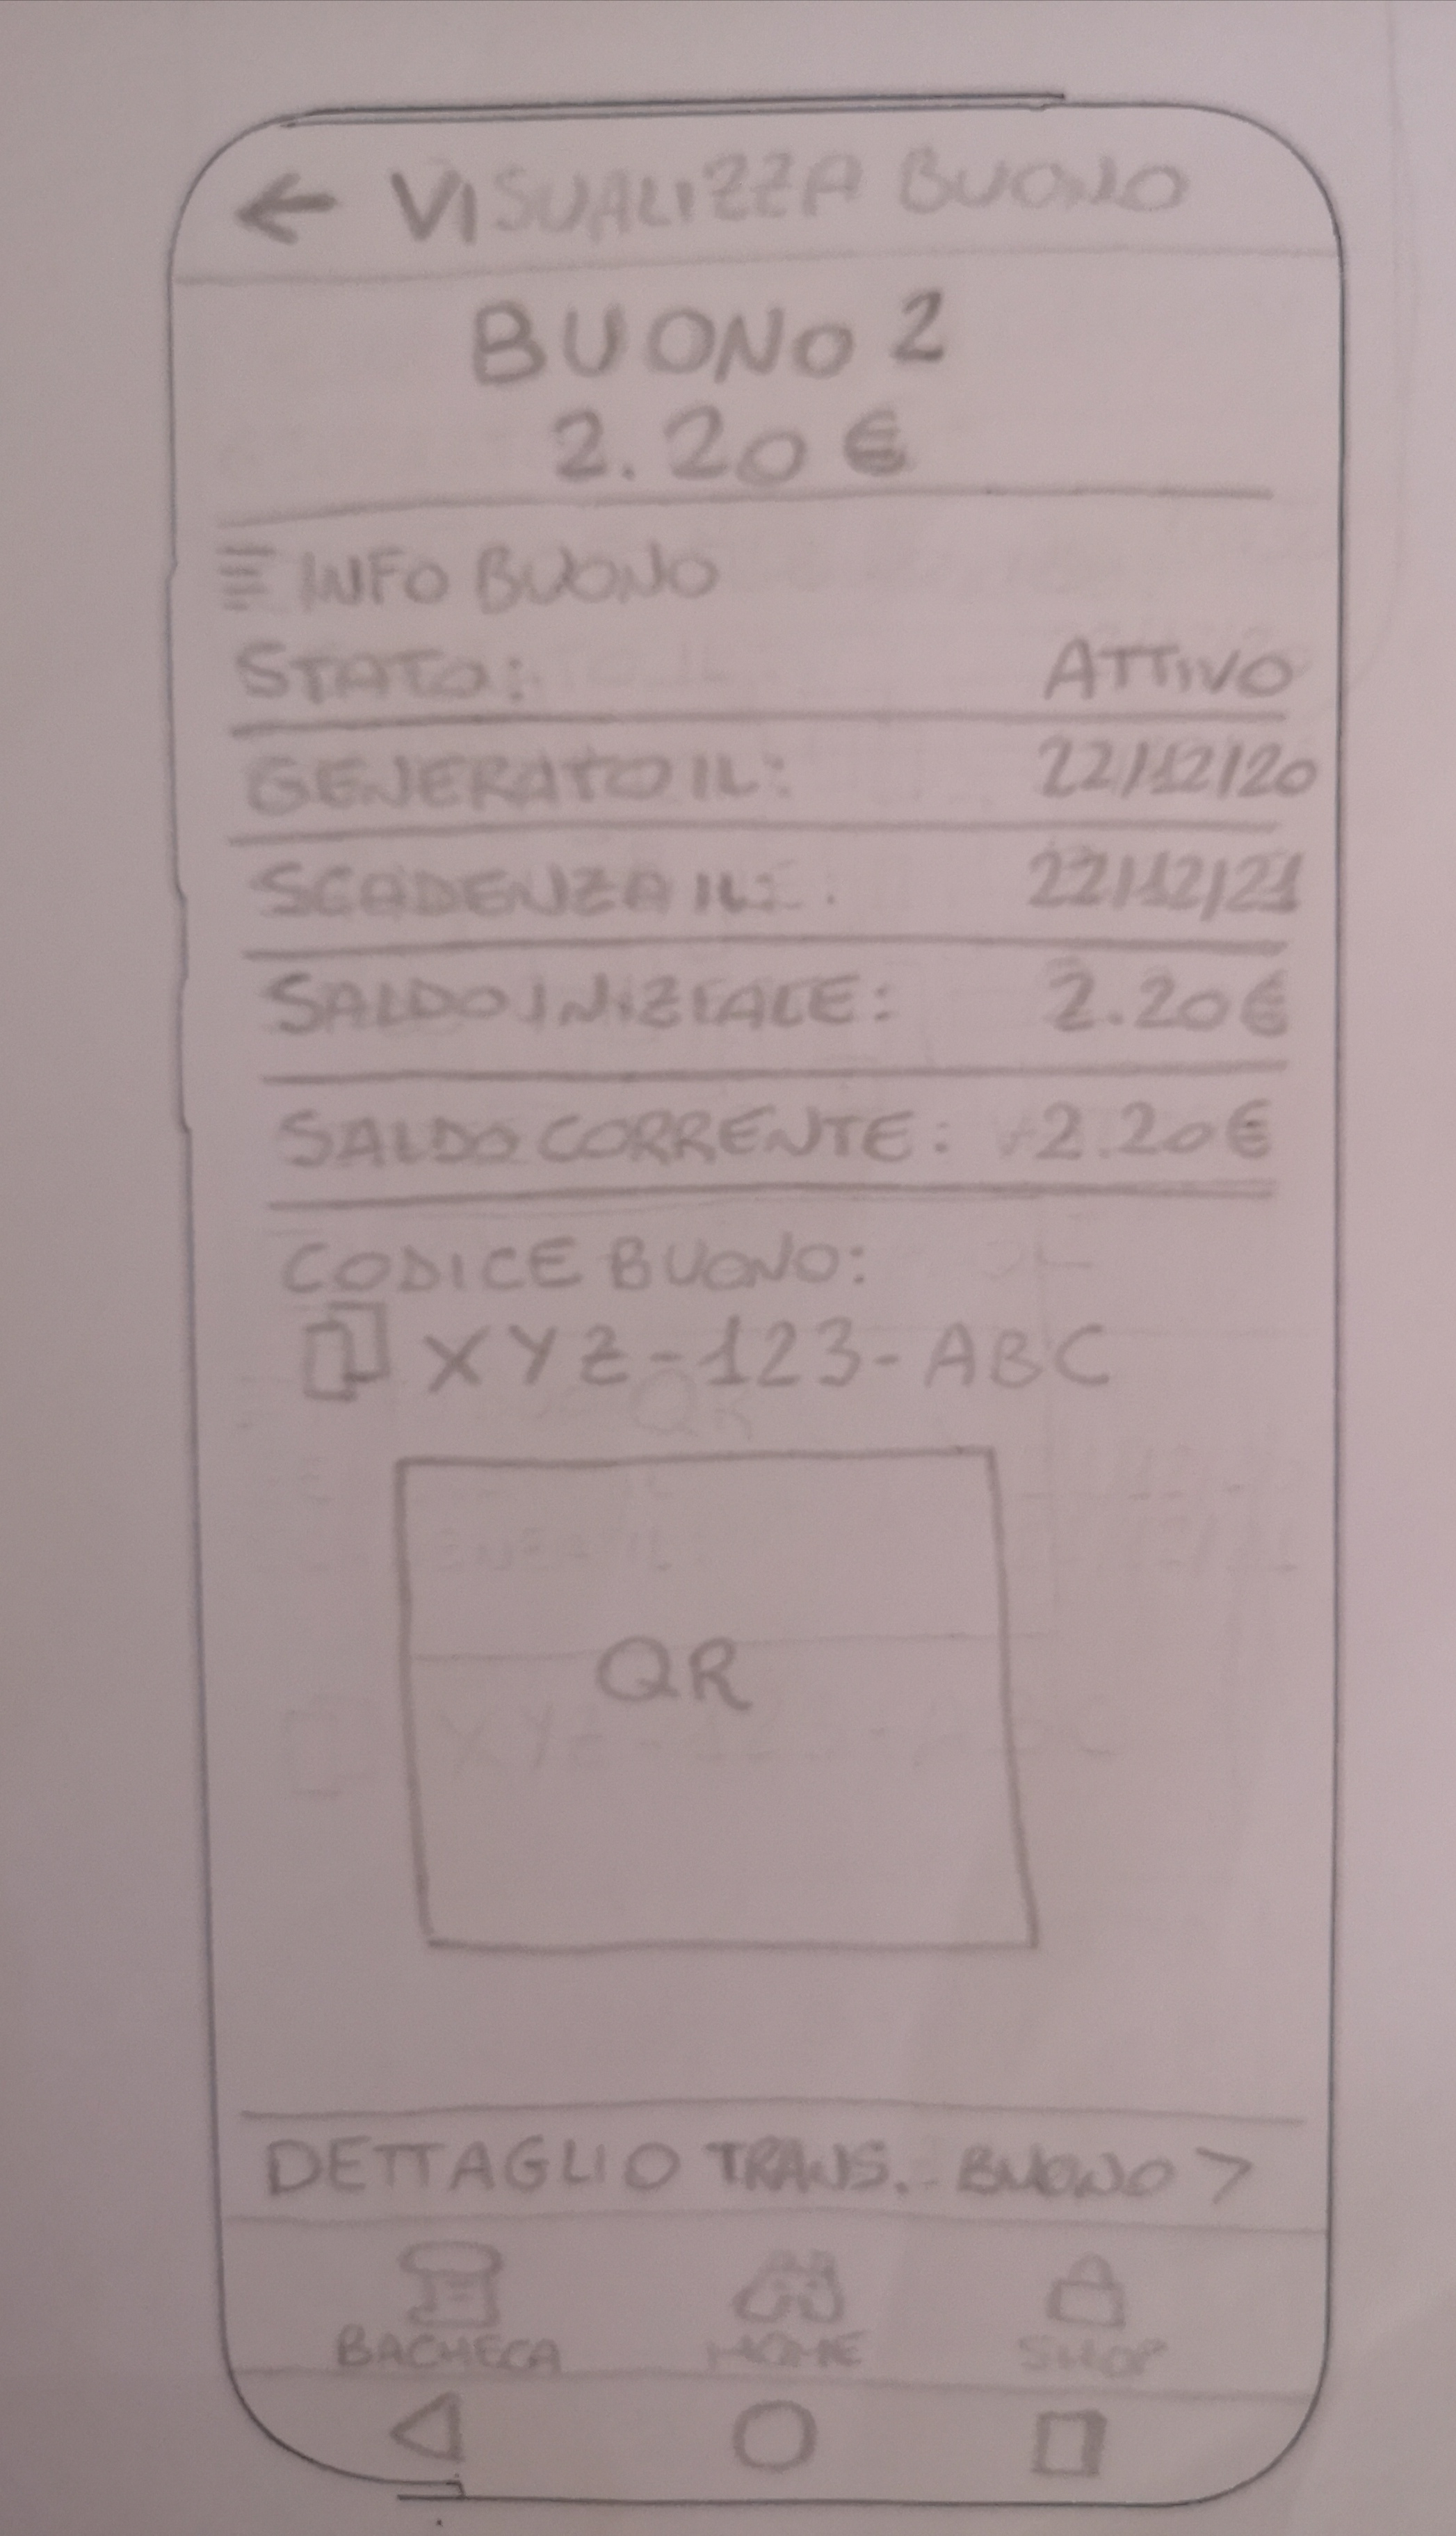 ← VISUALIZZA BUONO
BUONO 2
2.20 €
INFO BUONO
STATO: ATTIVO
GENERATO IL: 22/12/20
SCADENZA IL: 22/12/21
SALDO INIZIALE: 2.20€
SALDO CORRENTE: 2.20€
CODICE BUONO:
XYZ-123-ABC
QR
DETTAGLIO TRANS. BUONO >
BACHECA HOME SHOP